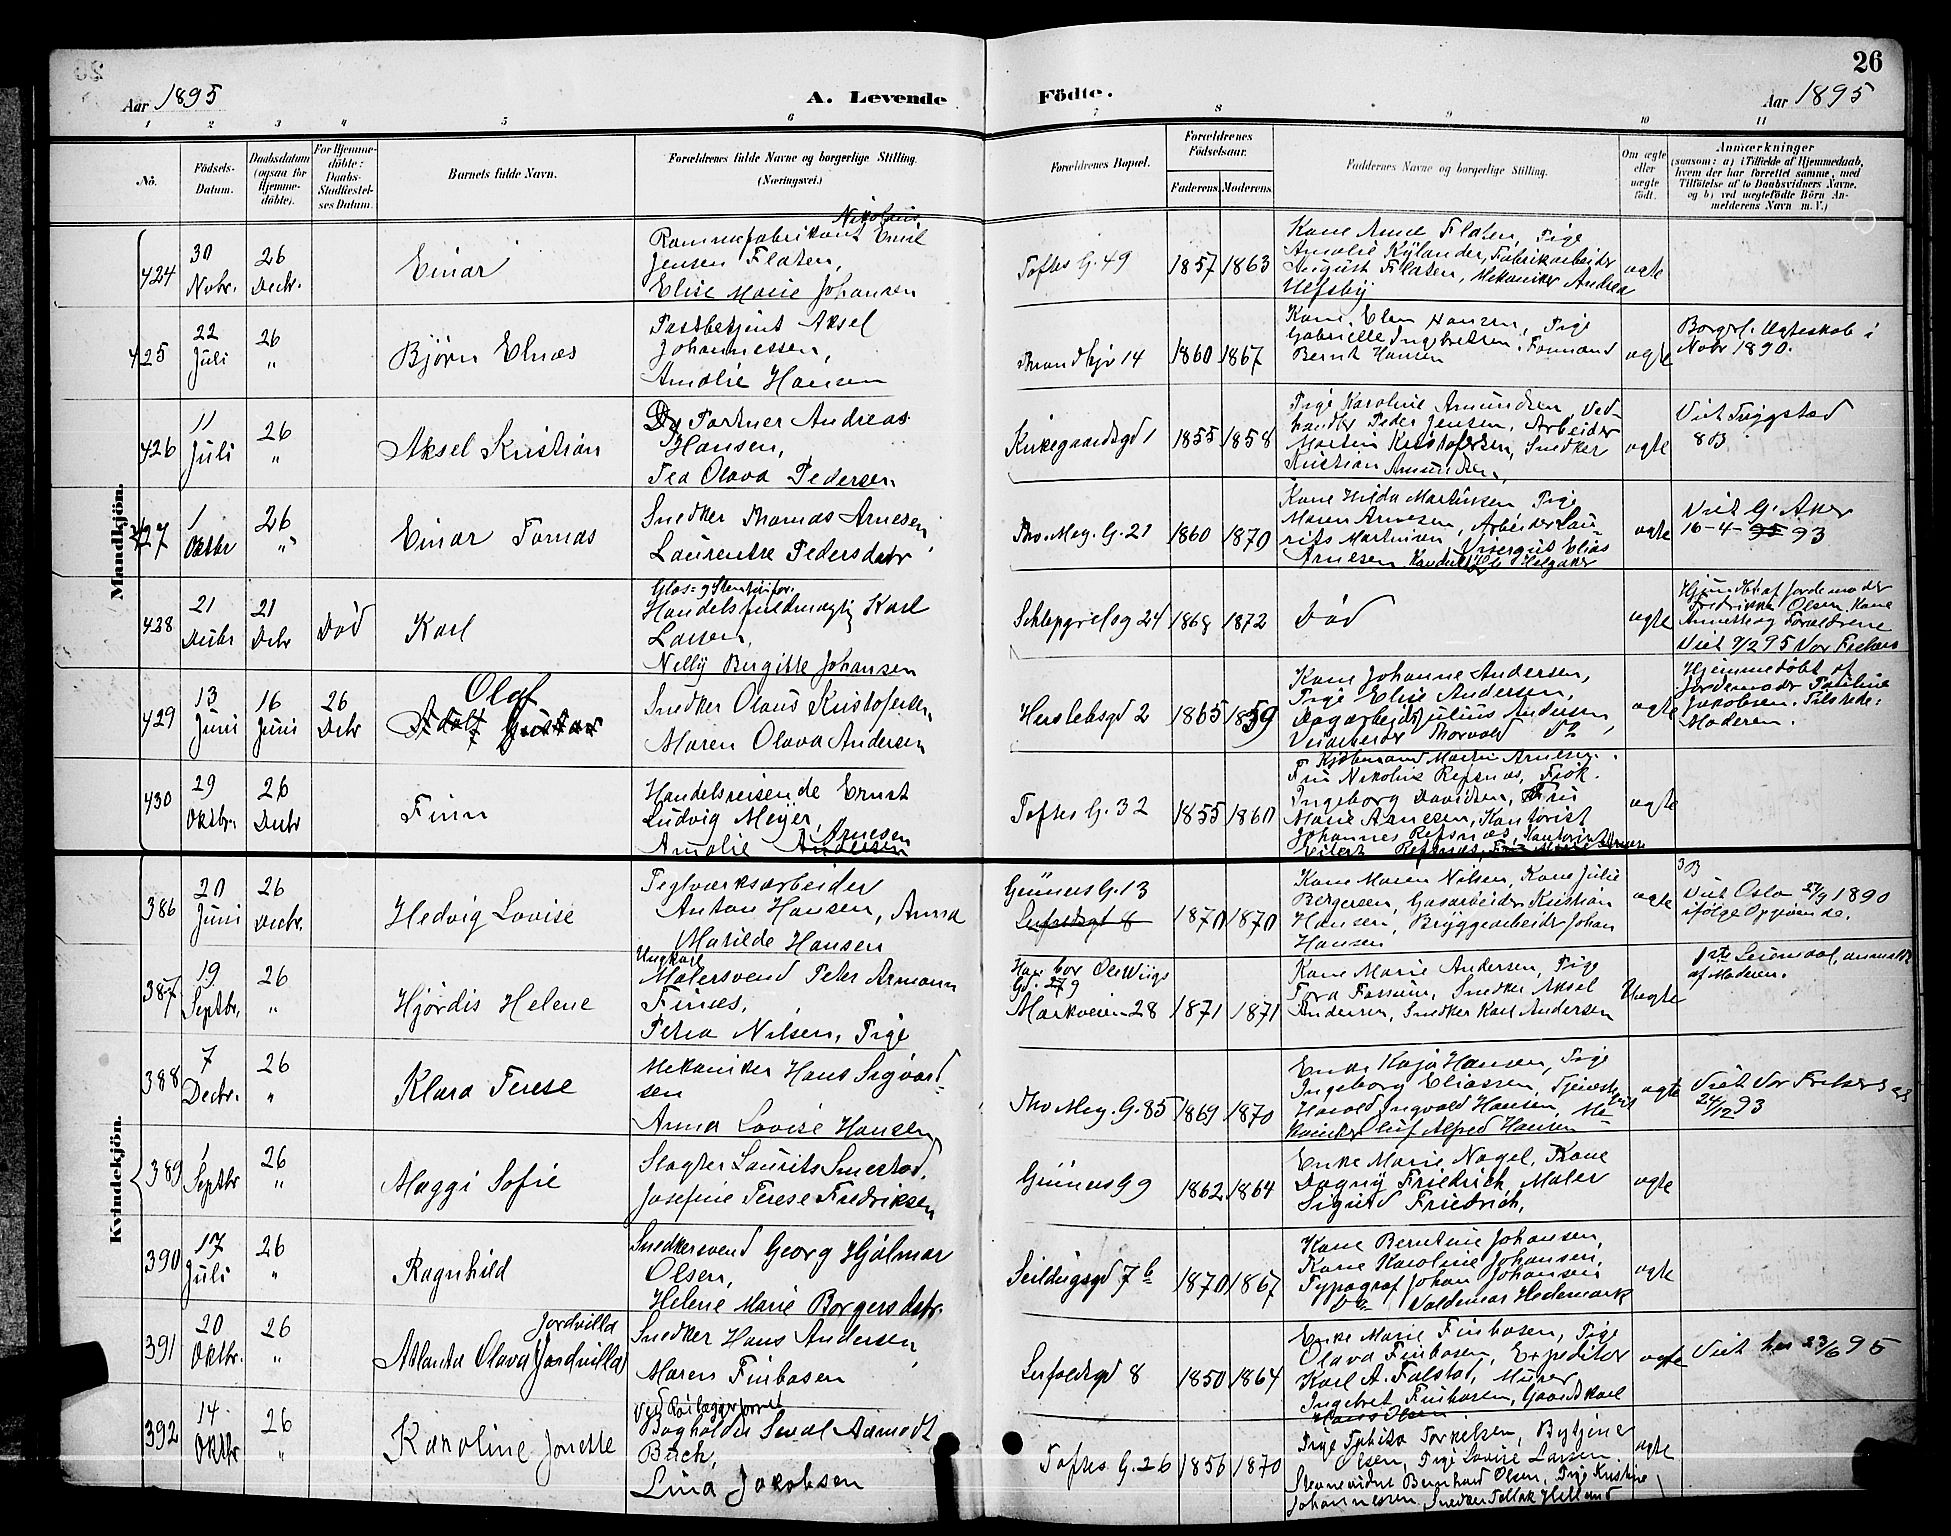 26
Aar 1895
A. Levende Födte.
Aar 1895
1 2 3 4 5 6 7 8 9 10 11
No.
Födsels-Datum.
Daabsdatum (ogsaa for Hjemme-döbte).
For Hjemme-döbte: Daabs-Stadfæstel-ses Datum.
Barnets fulde Navn.
Forældrenes fulde Navne og borgerlige Stilling. (Næringsvei.)
Forældrenes Bopæl.
Forældrenes Födselsaar.
Faderens. Moderens.
Faddernes Navne og borgerlige Stilling.
Om ægte eller uægte födt.
Anmærkninger
(saasom: a) i Tilfælde af Hjemmedaab, hvem der har forrettet samme, med Tilföielse af to Daabsvidners Navne, og b) ved uægtefödte Börn An-melderens Navn m. V.)
Mandkjön.
424
30 Novbr.
26 Decbr.
Einar
Nikolius
Rammefabrikant Emil
Jensen Flaten,
Elise Marie Johansen
Toftes G. 49
1857 1863
Kone Anne Flaten, Pige
Amalie Kylander, Fabrikarbeider
August Flaten, Mekaniker Andreas
Ulfsby
ægte
425
22 Juli
26 "
Bjørn Elnæs
Postbetjent Aksel
Johannessen,
Amalie Hansen
14
1860 1867
Kone Elen Hansen, Pige
Gabrielle Ingebretsen, Formand
Bernt Hansen
ægte
Borgerl. Ægteskab i
Novbr 1890.
426
11 Juli
26 "
Aksel Kristian
Portner Andreas
Hansen,
Tea Olava Pedersen
Kirkegaardsgd 1
1855 1858
Pige Karoline Amundsen, Ved-
handler Peder Jensen, Arbeider
Martin Kristofersen, Snedker
Kristian Amundsen,
ægte
Viet Trygstad
83
427
1 Oktbr
26 "
Einar Tomas
Snedker Thomas Arnesen,
Laurentze Pedersdatr
Thv. Mey. G. 21
1860 1870
Kone Hilda Martinsen, Pige
Maren Arnesen, Arbeider Lau-
rits Martinsen, Visergut Elias
Arnesen
ægte
Viet G. Aker
16-4-95 93
428
21 Decbr
21 Decbr
Død
Karl
Glas- og Stentøifor.
Handelsfuldmægtig Karl
Larsen,
Nelly Birgitte Johansen
Schleppegrelsg 24
1868 1872
Død
ægte
Hjemdbt af Jordemoder
Fredrikke Olsen, Kone
Annette og Forældrene
Viet 9/2 95 Vor Frelsers
429
13 Juni
16 Juni
26 Decbr
Olaf
Adolf Gustav
Snedker Olaus Kristofersen,
Maren Olava Andersen
Herslebsgd 2
1865 1859
Kone Johanne Andersen,
Pige Elise Andersen,
Dagarbeider Julius Andersen,
Veiarbeider Thorvald do
ægte
Hjemmedøbt af
Jordemoder Pauline
Jakobsen. Tilstede:
Moderen.
430
29 Oktbr.
26 Decbr
Finn
Handelsreisende Ernst
Ludvig Meyer,
Arnesen
Amalie Andersen
Toftes G. 32
1855 1860
Kjøbmand Martin Arnesen.
Fru Nikoline Refsnæs, Frøk.
Ingeborg Davidsen, Fru
Marie Arnesen, Kontorist
Johannes Refsnæs, Kontorist
Eilert Refsnæs,
ægte
Kvindekjön.
386
20 Juni
26 Decbr.
Hedvig Lovise
Teglværksarbeider
Anton Hansen, Anna
Matilde Hansen
Grüners G. 13
1870 1870
Kone Maren Nilsen, Kone Julie
Bergersen, Gasarbeider Kristian
Hansen, Bryggearbeider Johan
Hansen
ægte
Viet Oslo 27/9 1890
ifølge Opgivende.
387
19 Septbr.
26 "
Hjørdis Helene
Ungkarl
Malersvend Peter Armann
Finæs,
Petra Nilsen, Pige
Han bor Ole Wiigs
Gd. 9
Markveien 28
1871 1871
Kone Marie Andersen, Pige
Tora Fossum, Snedker Aksel
Andersen, Snedker Karl Andersen
Uægte
1ste Leiermaal, anmeldt
af Moderen.
388
7 Decbr.
26 "
Klara Terese
Mekaniker Hans Sigvard-
sen
Anna Lovise Hansen
Thv Mey. G. 85
1869 1870
Enke Kaja Hansen, Pige
Ingeborg Eliassen, Tjeneste
Harald Ingvald Hansen, Me-
kaniker Oluf Alfred Hansen
ægte
Viet Vor Frelsers
24/12 93
389
1 Septbr
26 "
Maggi Sofie
Slagter Laurits Smestad,
Josefine Terese Fredriksen
Grüners G 9
1862 1864
Enke Marie Nagel, Kone
Dagny Friedrich, Maler
Sigurd Friedrich,
ægte
390
17 Juli
26 "
Ragnhild
Snedkersvend Georg Hjalmar
Olsen,
Helene Marie Borgersdatr.
Seildugsgd 7b
1870 1867
Kone Berntine Johansen,
Kone Karoline Johansen,
Typograf Johan Johansen
Do Valdemar Hedemark
ægte
391
20 Oktbr.
26 "
Jordvilla
Atlanta Olava (Jordvilla)
Snedker Hans Andersen,
Maren Finbosen
Leirfaldsgd 8
1850 1864
Enke Marie Finbosen, Pige
Olava Finbosen, Expeditør
Karl A. Falstad, Murer
Ingebret Finbosen, Gaardskarl
Hans Olsen
ægte
Viet her 23/6 95
392
14 Oktbr
26 "
Karoline Jonette
Bogholder Seval Aamodt
Bach,
Lina Jakobsen
Toftes G. 26
1856 1870
Pige Tabita Torkelsen, Bytjener
Olsen, Pige Lovise Larsen
Bernhard Olsen, Pige Kristine
Johannessen, Snedker Tellak Helland
ægte